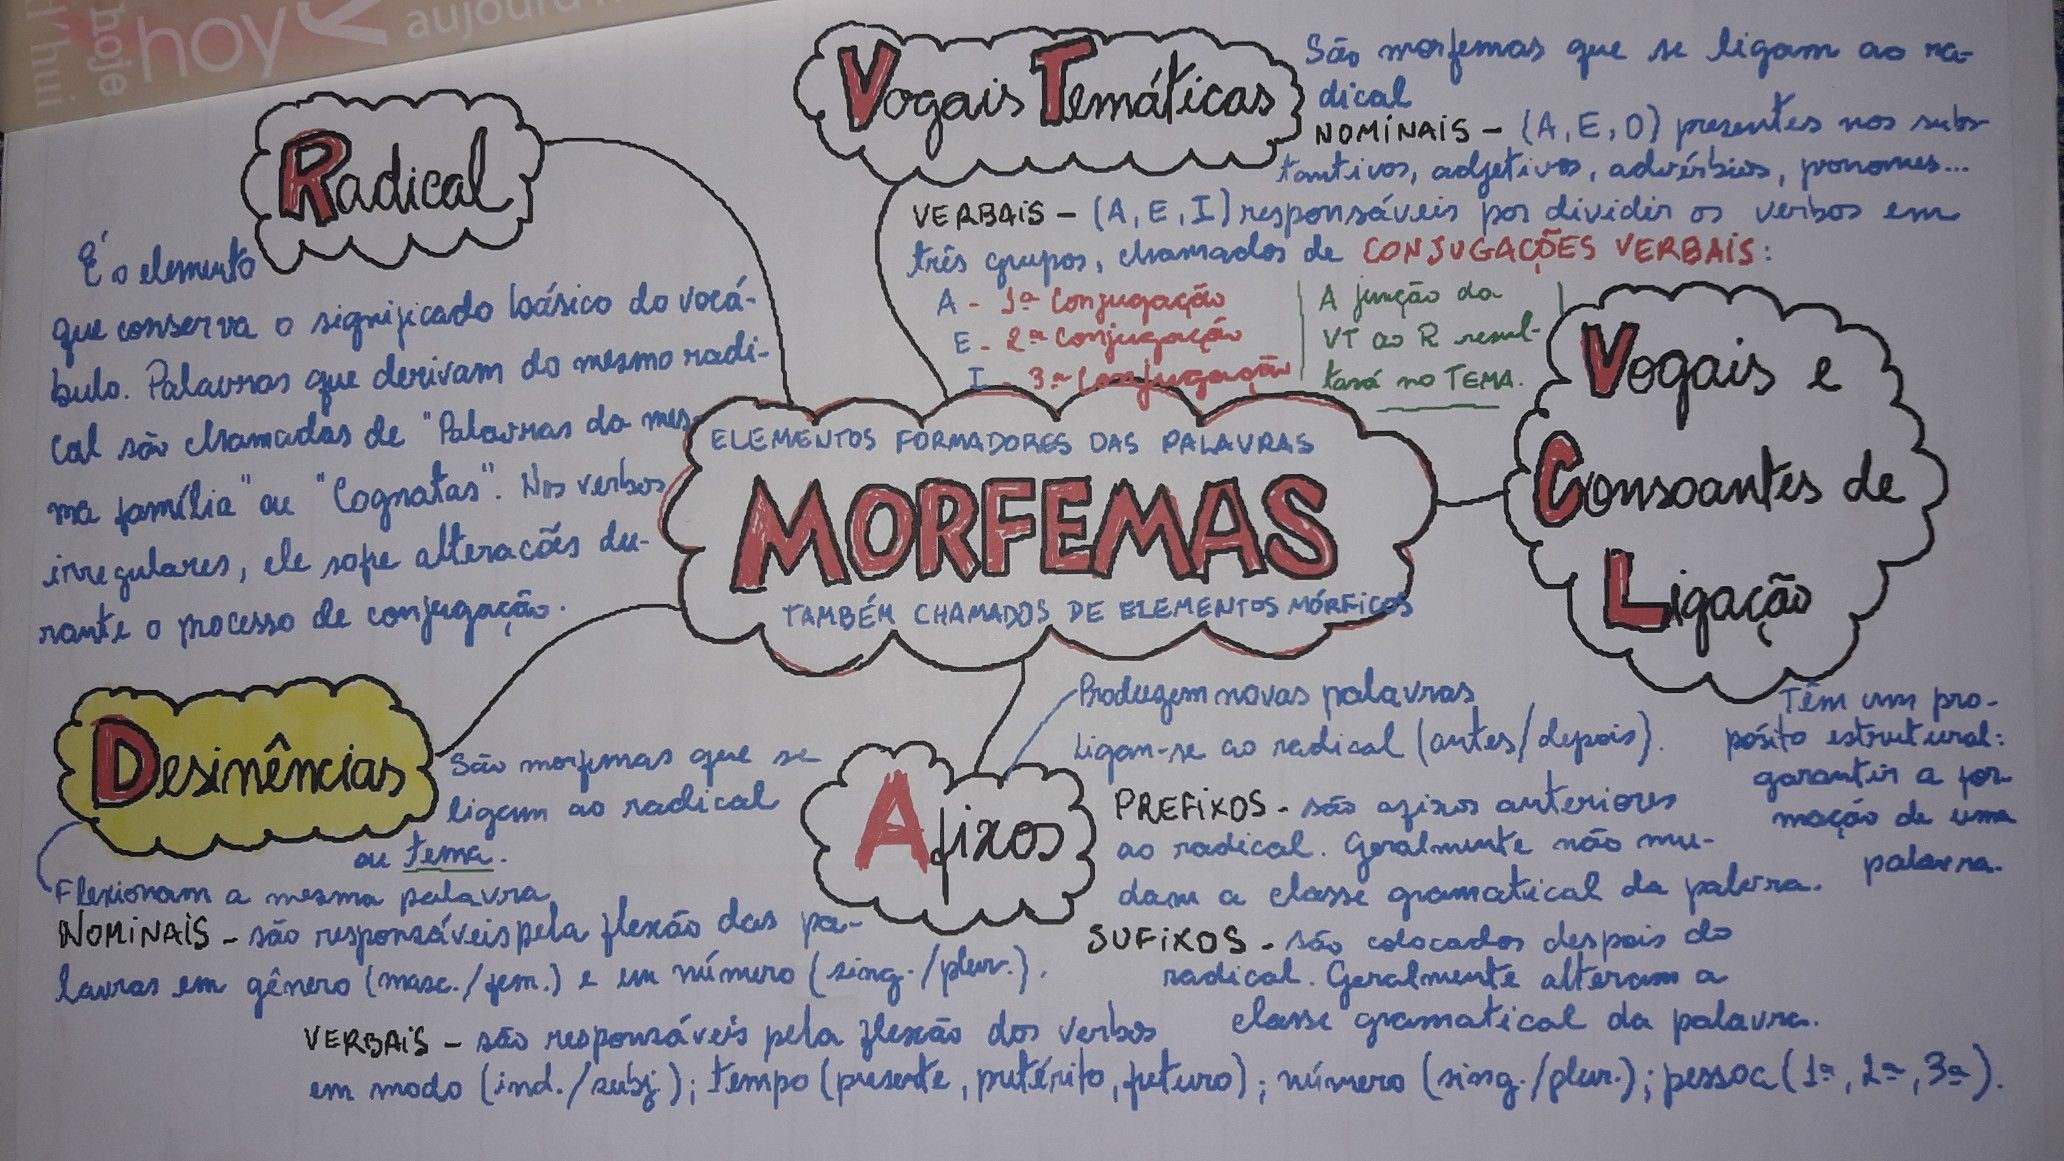 d'hui
hoje
hoy
aujourd'h
Radical
É o elemento
que conserva o significado básico do vocá-
bulo. Palavras que derivam do mesmo radi-
cal são chamadas de "Palavras da mes-
ma família" ou "Cognatas". Nos verbos
irregulares, ele sofre alterações du-
rante o processo de conjugação.
Vogais Temáticas
São morfemas que se ligam ao ra-
dical
NOMINAIS - (A, E, O) presentes nos subs-
tantivos, adjetivos, advérbios, pronomes...
VERBAIS - (A, E, I) responsáveis por dividir os verbos em
três grupos, chamados de CONJUGAÇÕES VERBAIS:
A - 1ª Conjugação
E - 2ª Conjugação
I - 3ª Conjugação
A junção da
VT ao R resul-
tará no TEMA.
ELEMENTOS FORMADORES DAS PALAVRAS
MORFEMAS
TAMBÉM CHAMADOS DE ELEMENTOS MÓRFICOS
Vogais e
Consoantes de
Ligação
Têm um pro-
pósito estrutural:
garantir a for
mação de uma
palavra.
Desinências
São morfemas que se
ligam ao radical
ou tema.
Flexionam a mesma palavra
NOMINAIS - são responsáveis pela flexão das pa-
lavras em gênero (masc./fem.) e em número (sing./plur.).
VERBAIS - são responsáveis pela flexão dos verbos
em modo (ind./subj.); tempo (presente, pretérito, futuro); número (sing./plur.); pessoa (1ª, 2ª, 3ª).
Afixos
Produzem novas palavras
Ligam-se ao radical (antes/depois).
PREFIXOS - são afixos anteriores
ao radical. Geralmente não mu-
dam a classe gramatical da palavra.
SUFIXOS - são colocados despois do
radical. Geralmente alteram a
classe gramatical da palavra.